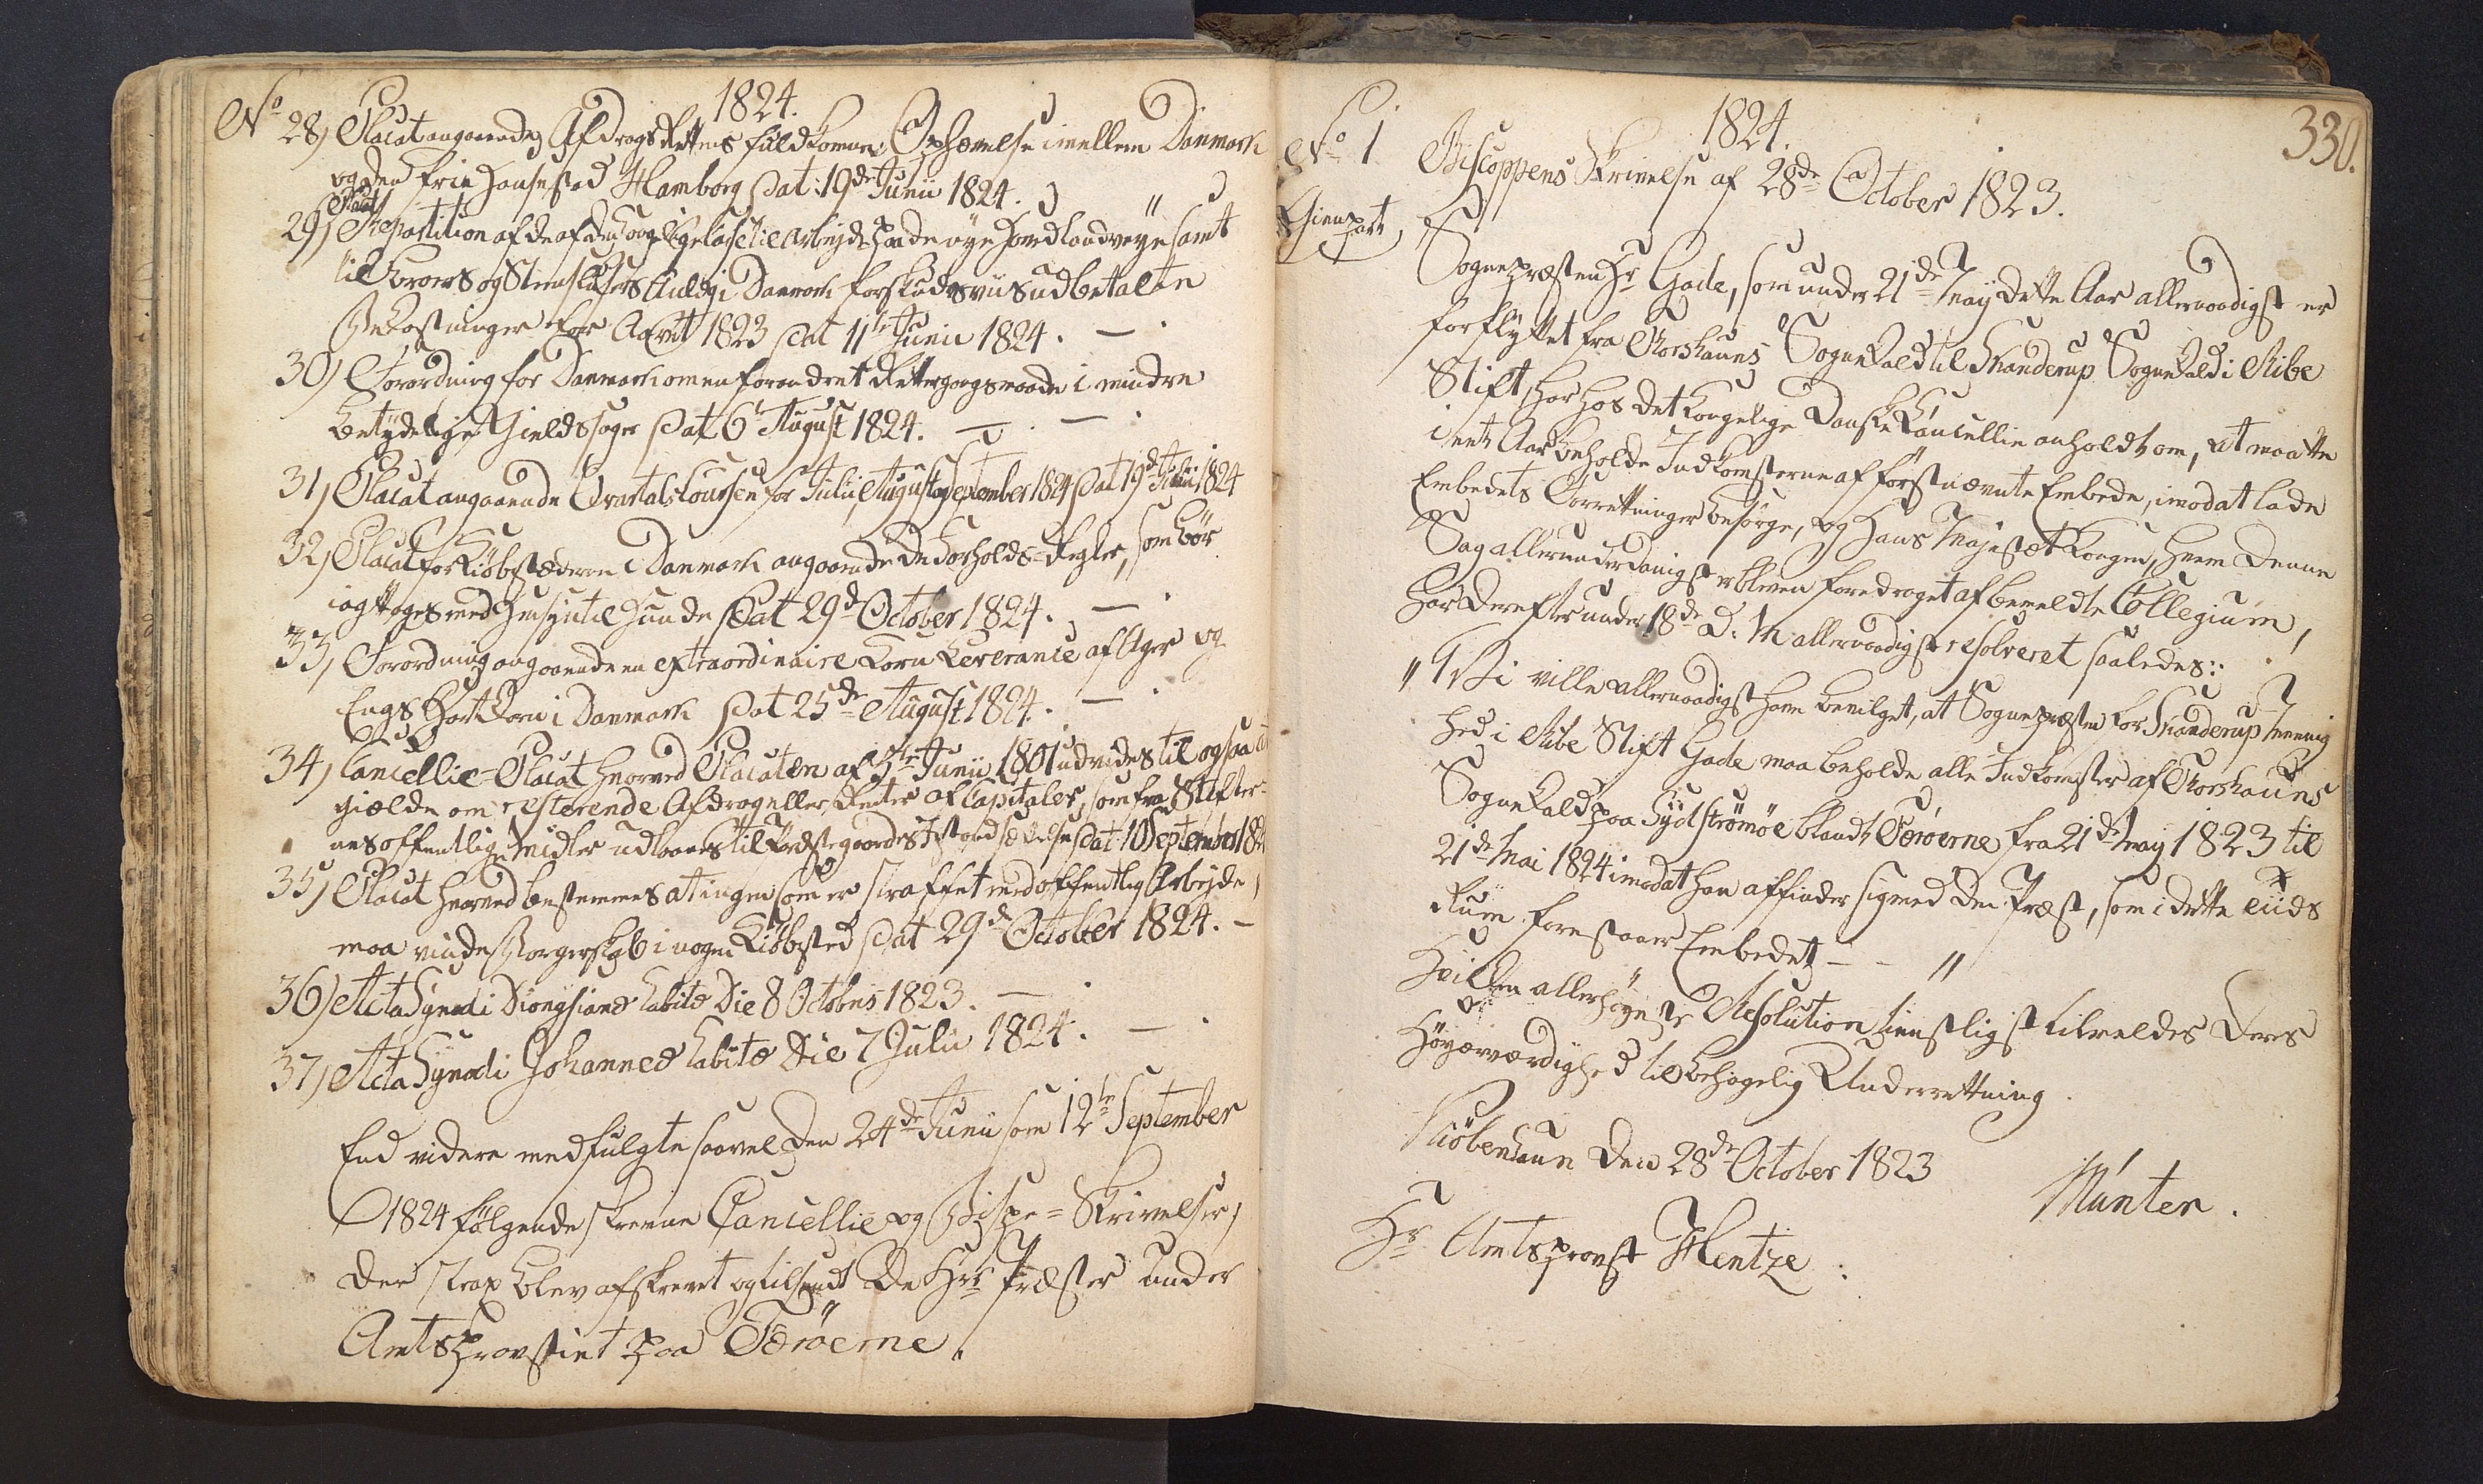 1824.
No 28) Placat angaaende Afdrags Rettens fuldkomne Ophævelse imellem Danmark
og den frie Hansestad Hamborg Dat: 19de Junii 1824.
29) Placat Repartition af de af den Kongelige Casse til Arbejde paa de nye Hovedlandveye samt
til Broers og Steenkisters Anlæg i Danmark forskudsviis udbetalte
Bekostninger for Aaret 1823 Dat 11te Junii 1824. —
30) Forordning for Danmark om en forandret Rettergangsmaade i mindre
betydelige Gieldssager Dat 6te August 1824. —
31) Placat angaaende Qvartals Coursen for Julii, August og September 1824 Dat 19de Julii 1824
32) Placat for Kiöbstæderne i Danmark angaaende de Forholds-Regler, som bör
iagttages med Hensyn til Hunde Dat 29d October 1824. —
33) Forordning angaaende en extraordinaire Korn Leverance af Ager og
Engs Hartkorn i Danmark Dat 25de August 1824. —
34) Cancellie-Placat hvorved Placaten af 3die Junii 1801 udvides til ogsaa at
gielde om resterende Afdrag eller Renter af Capitaler, som fra Stifter-
nes offentlige Midler udlaanes til Præstegaardes Istandsættelse Dat 10 September 1824
35) Placat hvorved bestemmes at ingen som er straffet med offentlig Arbejde,
maa vinde Borgerskab i nogen Kiöbsted Dat 29de October 1824. —
36) Acta Synodi Dionysianæ habitæ Die 8 Octobris 1823. —
37) Acta Synodi Johanneæ habitæ Die 7 Julii 1824. —
End videre medfulgte saavel den 24de Junii som 12te September
1824 fölgende skrevne Cancellie og Bispe-Skrivelser,
der strax blev afskrevet og tilsendt De Hrr Præster under
Amtsprovstiet paa Færöerne.
330.
1824.
No 1 Biscoppens Skrivelse af 28de October 1823.
Gienpart
Sognepræsten Hr Gade, som under 21de May dette Aar allernaadigst er
forflyttet fra Thorshauns Sognekald til Skanderup Sognekald i Ribe
Stift, har hos det Kongelige Danske Cancellie anholdt om, at maatte
i eet Aar beholde Indkomsterne af förstnævnte Embede, imod at lade
Embedets Forretninger besörge, og Hans Majestæt Kongen, hvem denne
Sag allerunderdanigst er bleven foredraget af bemeldte Collegium,
har derefter under 18de d. M. allernaadigst resolveret saaledes:
"Vi ville allernaadigst have bevilget, at Sognepræsten for Skanderup Menig
hed i Ribe Stift Gade maa beholde alle Indkomster af Thorshauns
Sognekald paa Sydströmöe blandt Færöerne fra 21de May 1823 til
21de Mai 1824 imod at han affinder sig med den Præst, som i dette Tids
Rum forestaaer Embedet — "
Hvilken allerhöyeste Resolution tienstligst tilmeldes Deres
Höyærværdighed til behagelig Underretning.
Kiöbenhavn den 28de October 1823
Münter.
Hr Amtsprovst Hentze.